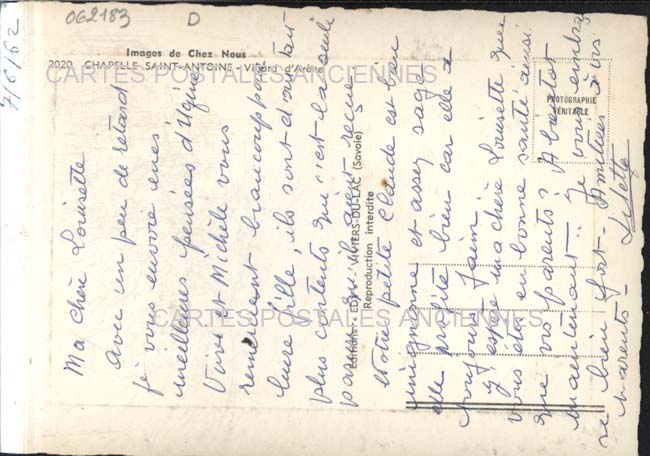 7/6/62
062183 D
Images de Chez Nous
2020 CHAPELLE SAINT-ANTOINE - Villard d'Arène
CARTES POSTALES ANCIENNES
PHOTOGRAPHIE
VÉRITABLE
Editions EDY - VIVIERS-DU-LAC (Savoie)
Reproduction interdite
CARTES POSTALES ANCIENNES
Ma chère Louisette
Avec un peu de retard
je vous envoie mes
meilleures pensées d'Ugine
et Michèle vous
remercient beaucoup pour
leur fille, ils sont d'autant
plus contents que c'est la seule
qu'ils aient reçue
Notre petite Claude est bien
mignonne et assez sage
elle profite bien car elle a
toujours faim.
J'espère ma chère Louisette que
vous êtes en bonne santé ainsi
que vos parents. A bientôt
maintenant. Je vous embras
se bien fort - Amitiés à vos
parents -
Lisette